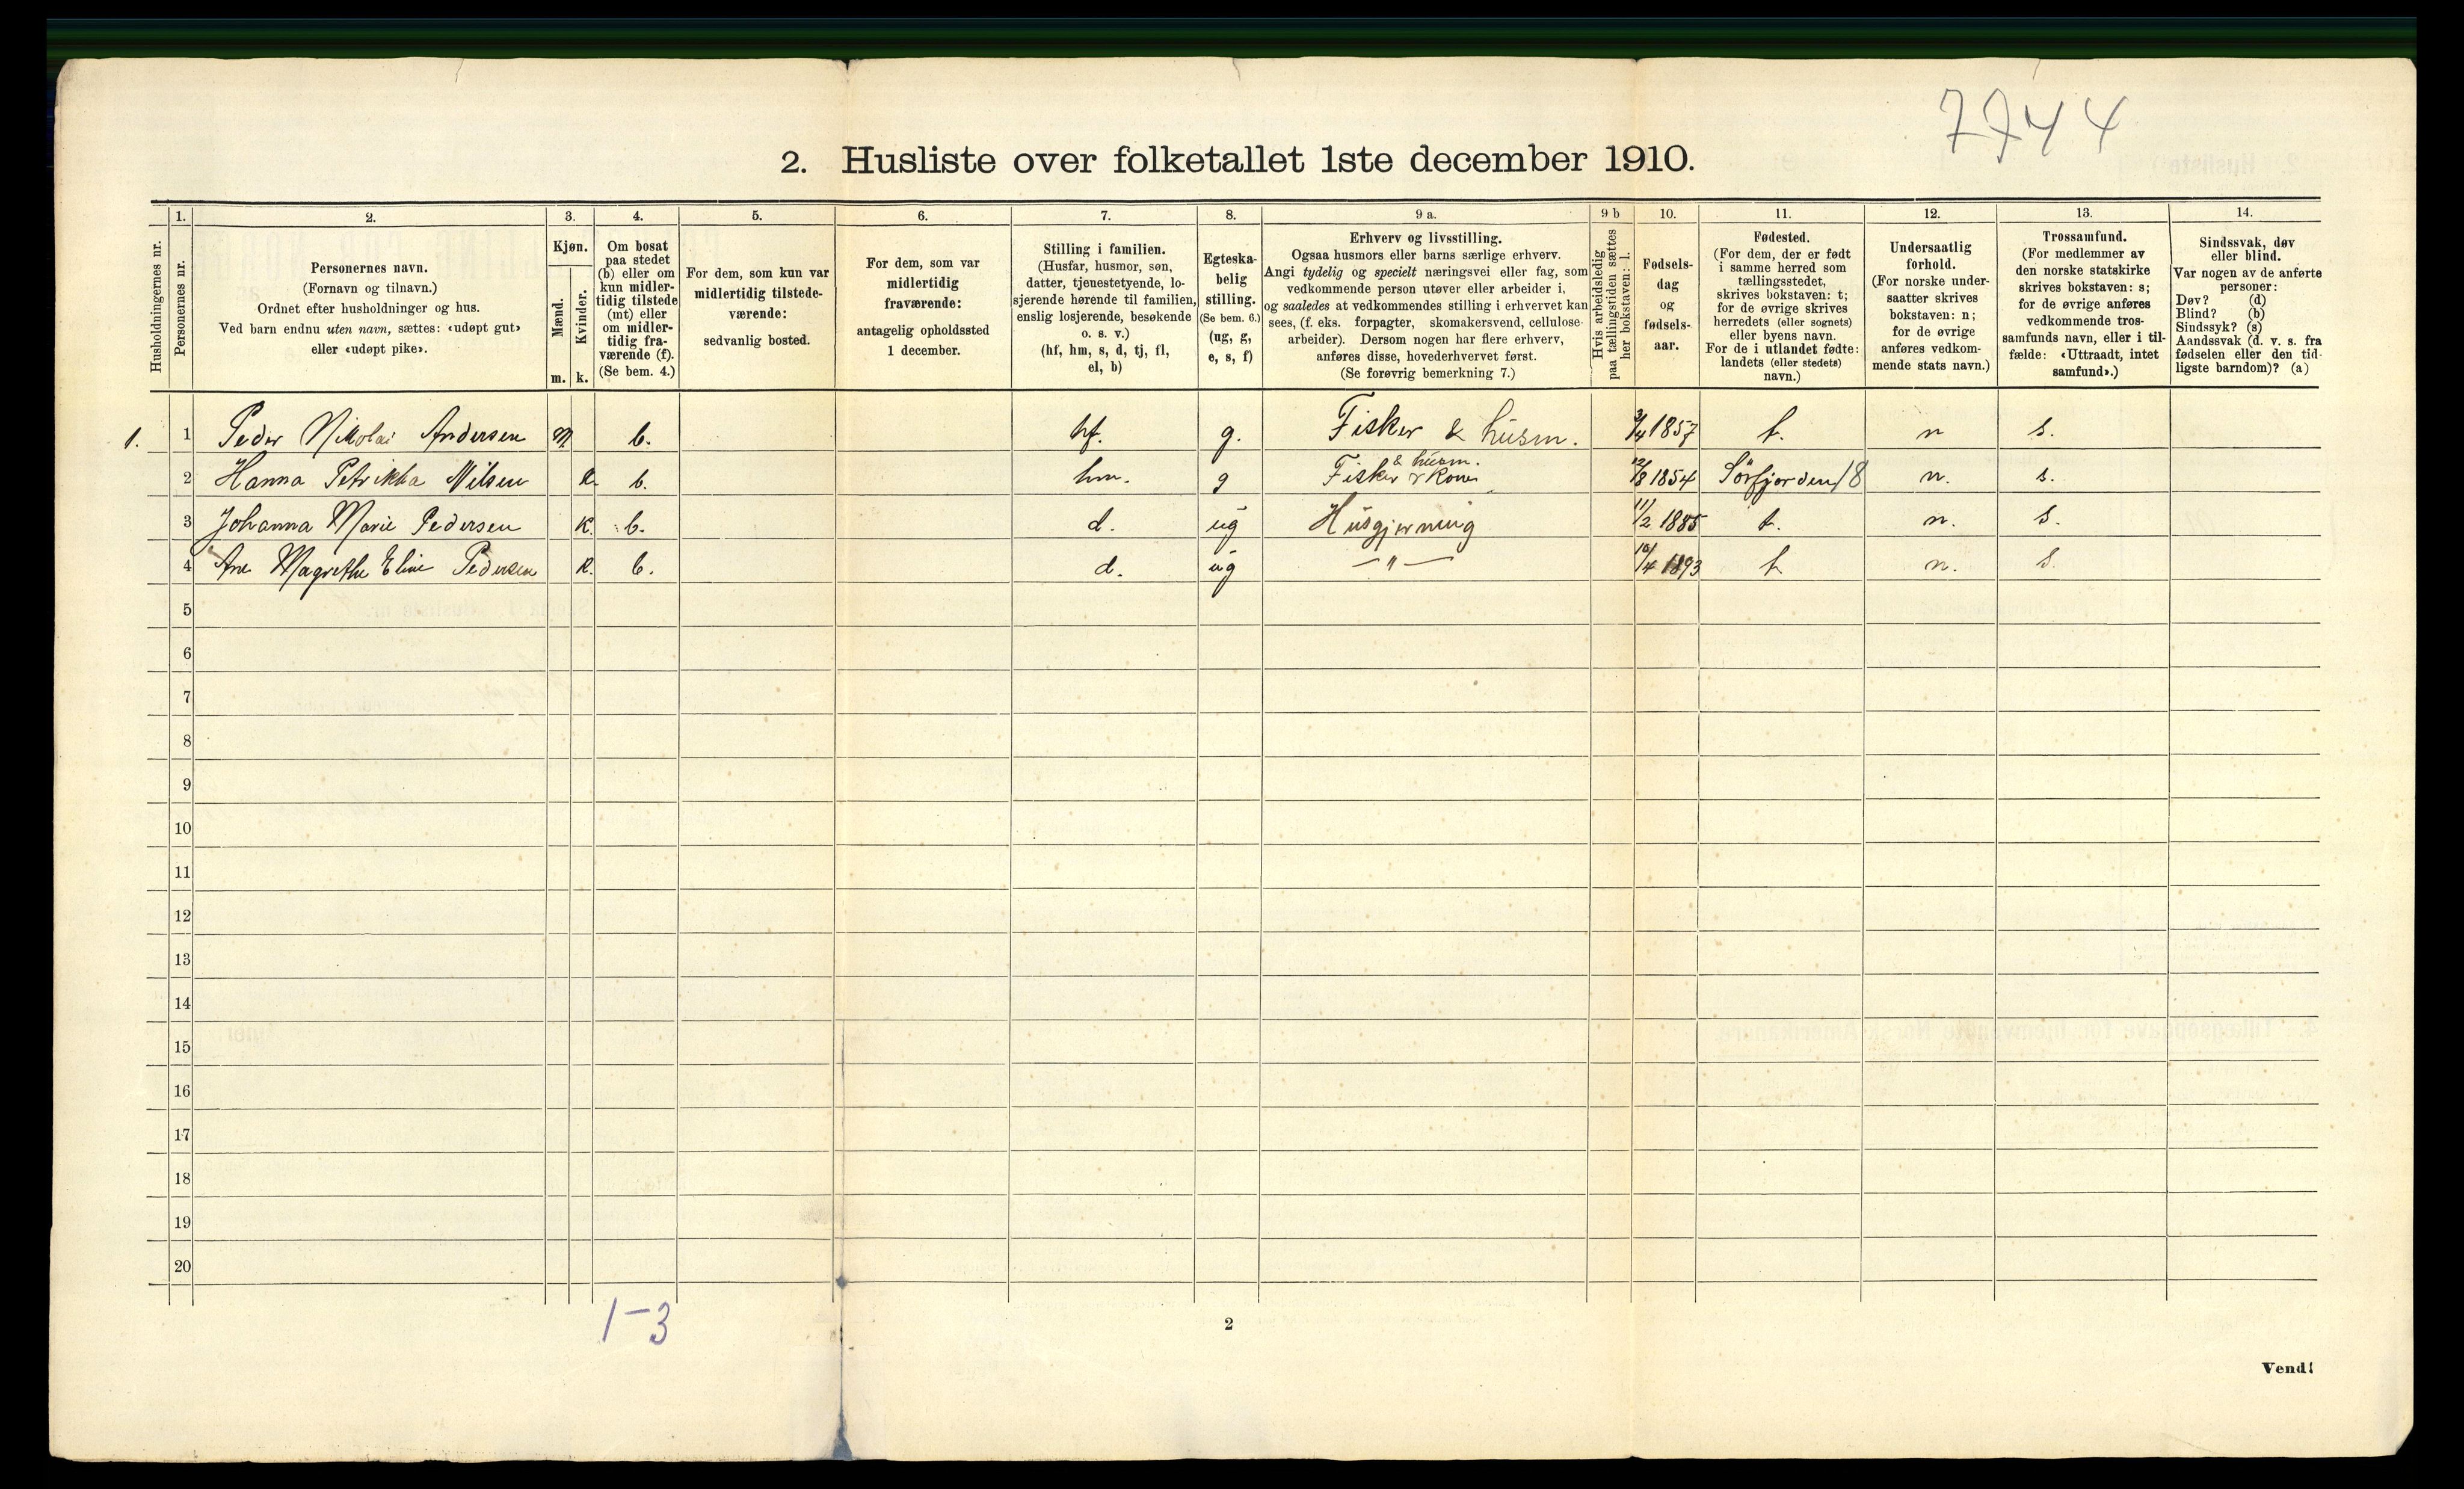 7744
2. Husliste over folketallet 1ste december 1910.
Husholdningernes nr.
1.
Personernes nr.
2.
Personernes navn.
(Fornavn og tilnavn.)
Ordnet efter husholdninger og hus.
Ved barn endnu uten navn, sættes: «udøpt gut»
eller «udøpt pike».
3.
Kjøn.
Mænd.
Kvinder.
m. k.
4.
Om bosat
paa stedet
(b) eller om
kun midler-
tidig tilstede
(mt) eller
om midler-
tidig fra-
værende (f).
(Se bem. 4.)
5.
For dem, som kun var
midlertidig tilstede-
værende:
sedvanlig bosted.
6.
For dem, som var
midlertidig
fraværende:
antagelig opholdssted
1 december.
7.
Stilling i familien.
(Husfar, husmor, søn,
datter, tjenestetyende, lo-
sjerende hørende til familien,
enslig losjerende, besøkende
o. s. v.)
(hf, hm, s, d, tj, fl,
el, b)
8.
Egteska-
belig
stilling.
(Se bem. 6.)
(ug, g,
e, s, f)
9 a.
Erhverv og livsstilling.
Ogsaa husmors eller barns særlige erhverv.
Angi tydelig og specielt næringsvei eller fag, som
vedkommende person utøver eller arbeider i,
og saaledes at vedkommendes stilling i erhvervet kan
sees, (f. eks. forpagter, skomakersvend, cellulose-
arbeider). Dersom nogen har flere erhverv,
anføres disse, hovederhvervet først.
(Se forøvrig bemerkning 7.)
9 b
Hvis arbeidsledig
paa tællingstiden sættes
her bokstaven: l.
10.
Fødsels-
dag
og
fødsels-
aar.
11.
Fødested.
(For dem, der er født
i samme herred som
tællingsstedet,
skrives bokstaven: t;
for de øvrige skrives
herredets (eller sognets)
eller byens navn.
For de i utlandet fødte:
landets (eller stedets)
navn.)
12.
Undersaatlig
forhold.
(For norske under-
saatter skrives
bokstaven: n;
for de øvrige
anføres vedkom-
mende stats navn.)
13.
Trossamfund.
(For medlemmer av
den norske statskirke
skrives bokstaven: s;
for de øvrige anføres
vedkommende tros-
samfunds navn, eller i til-
fælde: «Uttraadt, intet
samfund».)
14.
Sindssvak, døv
eller blind.
Var nogen av de anførte
personer:
Døv? (d)
Blind? (b)
Sindssyk? (s)
Aandssvak (d. v. s. fra
fødselen eller den tid-
ligste barndom)? (a)
1. 1 Peder Nikolai Andersen m b. hf. g. Fisker & húsm. 3/4 1857 t. n s.
2 Hanna Petrikka Nilsen k. b. hm. g Fisker & húsm. kone 12/8 1854 Sörfjorden 18 n. s.
3 Johanna Marie Pedersen k. b. d. úg Húsgjerning 11/2 1885 t. n. s.
4 Ane Magrethe Eline Pedersen k. b. d. úg — " — 10/4 1893 t n. s.
5
6
7
8
9
10
11
12
13
14
15
16
17
18
19
20
1-3
2
Vend!